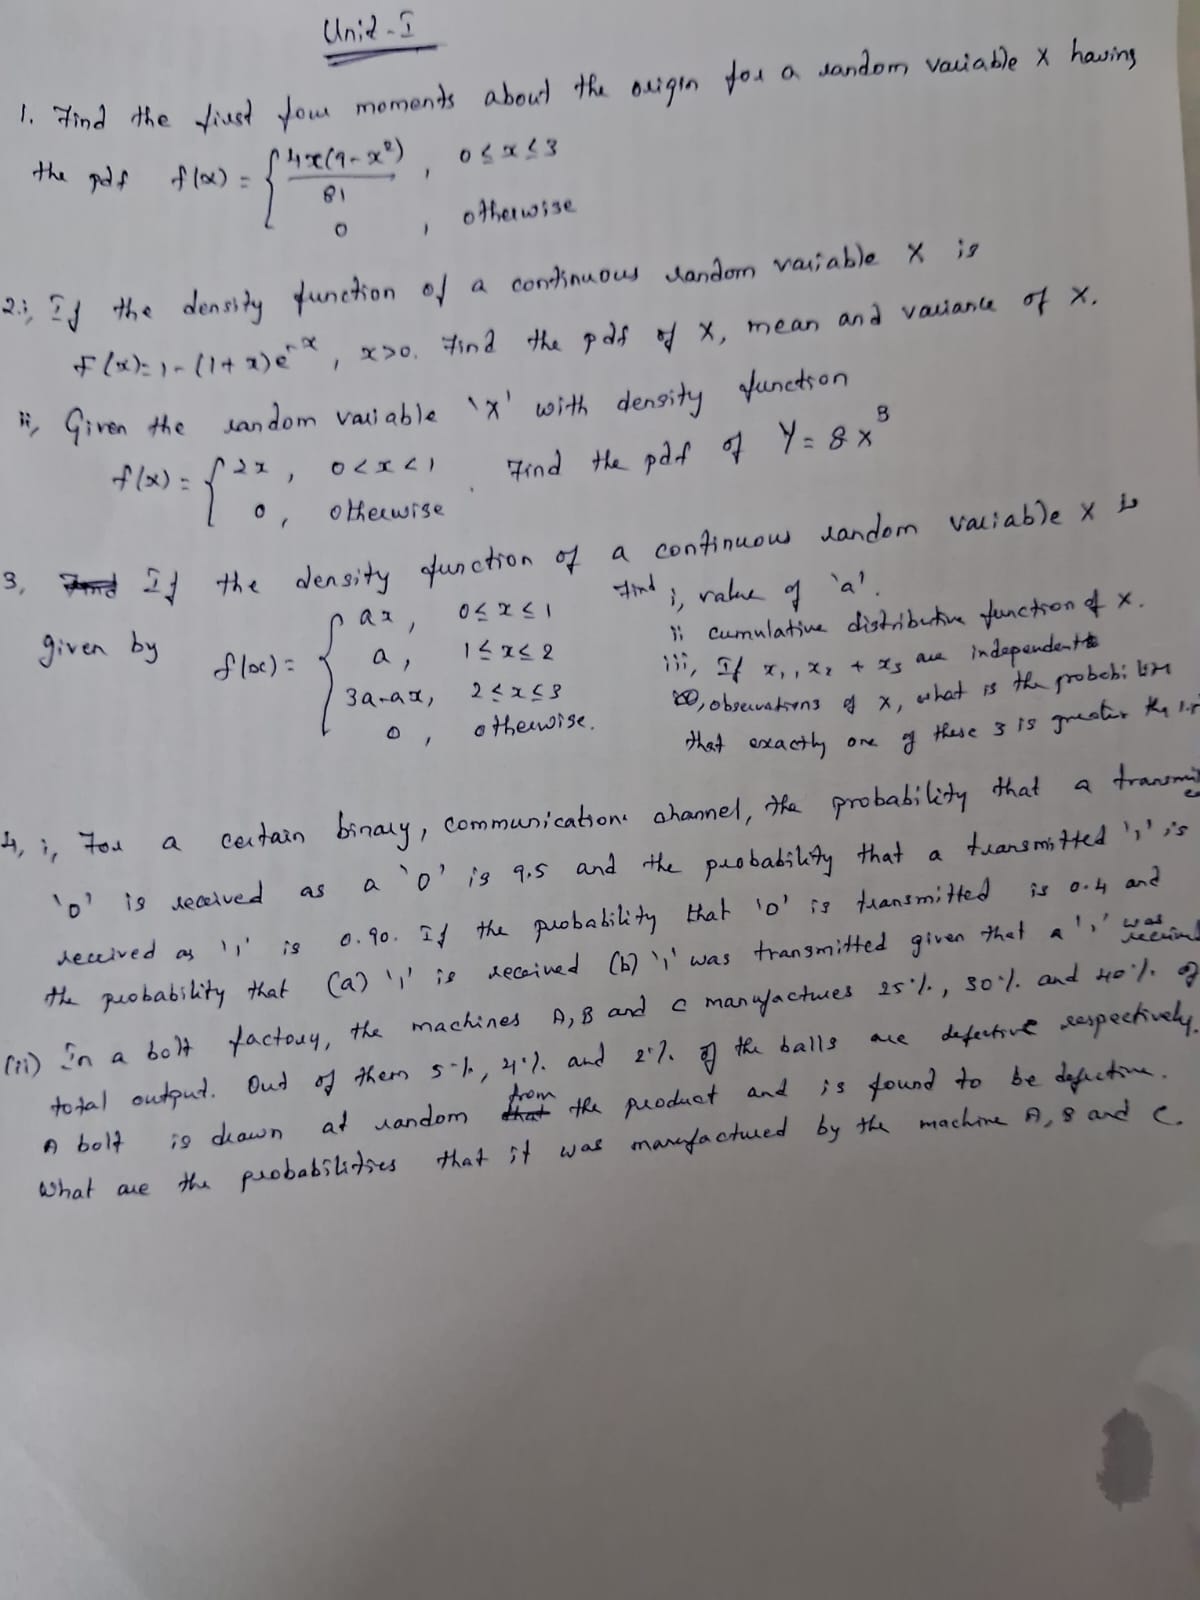 Unit - I
1. Find the first four moments about the origin for a random variable X having
the pdf f(x) = { 4x(9-x²)/81 , 0 ≤ x ≤ 3
0 , otherwise
2.i, If the density function of a continuous random variable X is
F(x)=1-(1+x)e^-x , x>0. Find the pdf of X, mean and variance of X.
ii, Given the random variable 'X' with density function
f(x) = { 2x , 0<x<1 . Find the pdf of Y = 8x³
0 , otherwise
3, If the density function of a continuous random variable X is
given by f(x) = { ax , 0≤x≤1 Find i, value of 'a'.
a , 1≤x≤2 ii cumulative distributive function of X.
3a-ax, 2≤x≤3 iii, If x₁, x₂ + x₃ are independent
0 , otherwise. observations of X, what is the
that exactly one of these 3 is greater
4, i, For a certain binary, communication channel, the probability that a
'0' is received as a '0' is 9.5 and the probability that a transmitted '1' is
received as '1' is 0.90. If the probability that '0' is transmitted is 0.4 and
the probability that (a) '1' is received (b) '1' was transmitted given that a '1' was received
(ii) In a bolt factory, the machines A, B and C manufactures 25%, 30% and 40% of
total output. Out of them 5%, 4% and 2% of the balls are defective respectively.
A bolt is drawn at random from the product and is found to be defective.
What are the probabilities that it was manufactured by the machine A, B and C.